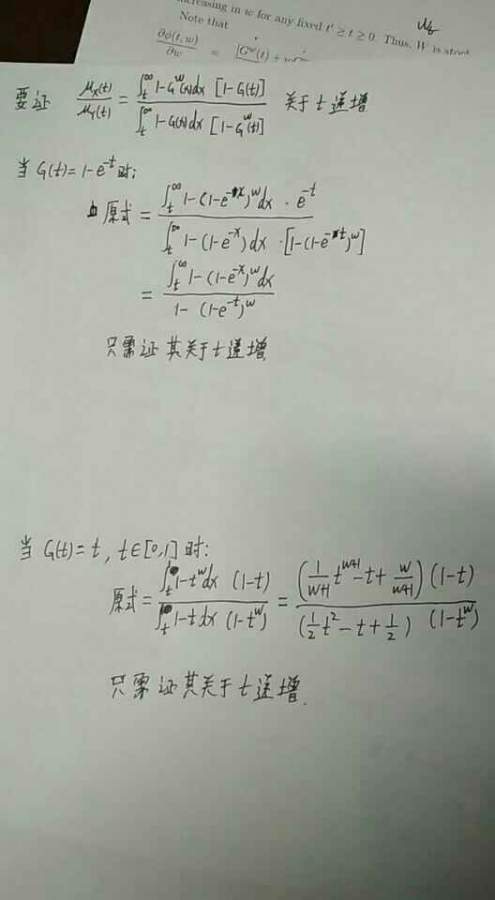 increasing in w for any fixed t' ≥ t ≥ 0. Thus, W is
Note that
∂φ(t, w)
∂w = [G^w(t) +
要证 μ_X(t)/μ_Y(t) = ∫_t^∞ 1-G^w(x)dx [1-G(t)] / ∫_t^∞ 1-G(x)dx [1-G^w(t)] 关于 t 递增
当 G(t)=1-e^{-t} 时:
原式 = ∫_t^∞ 1-(1-e^{-x})^w dx · e^{-t} / ∫_t^∞ 1-(1-e^{-x})dx · [1-(1-e^{-t})^w]
= ∫_t^∞ 1-(1-e^{-x})^w dx / 1-(1-e^{-t})^w
只需证其关于 t 递增
当 G(t)=t, t∈[0,1] 时:
原式 = ∫_t 1-t^w dx (1-t) / ∫_t 1-t dx (1-t^w) = (1/(w+1) t^{w+1} - t + w/(w+1)) (1-t) / (1/2 t^2 - t + 1/2) (1-t^w)
只需证其关于 t 递增.